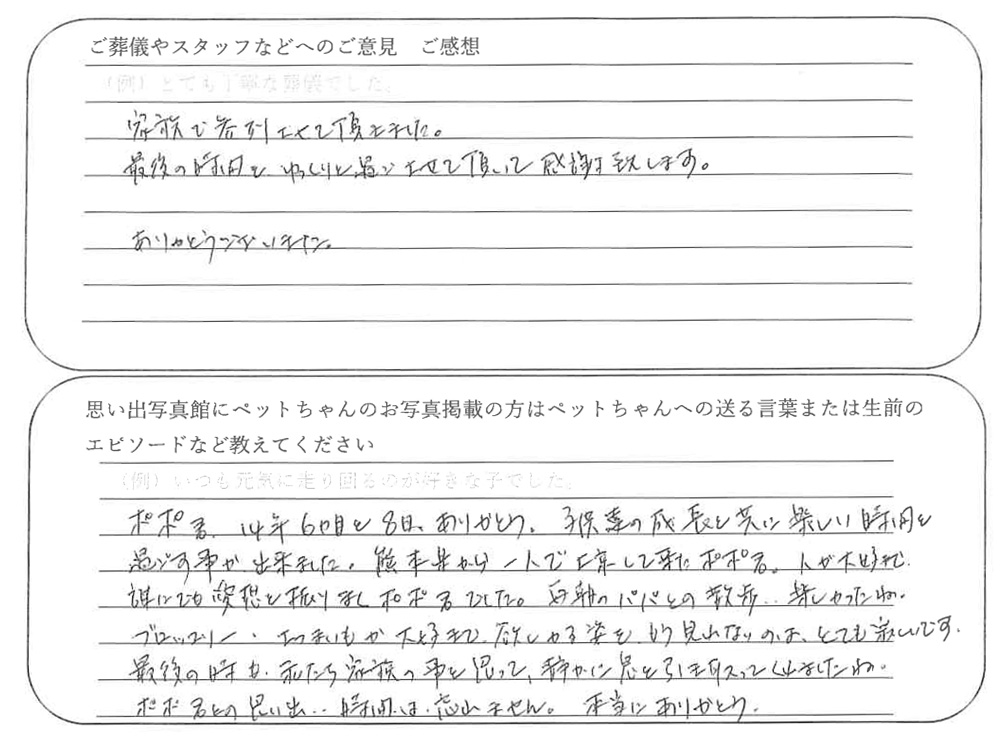 ご葬儀やスタッフなどへのご意見　ご感想
（例）とても丁寧な葬儀でした。
家族で参列させて頂きました。
最後の時間を、ゆっくりと過ごさせて頂いて感謝致します。
ありがとうございました。
思い出写真館にペットちゃんのお写真掲載の方はペットちゃんへの送る言葉または生前の
エピソードなど教えてください
（例）いつも元気に走り回るのが好きな子でした。
ポポ君、14年6ヶ月と8日、ありがとう。子供達の成長と共に楽しい時間を
過ごす事が出来ました。熊本県から一人で上京して来たポポ君。人が大好きで、
誰にでも愛想を振りまくポポ君でした。毎朝のパパとの散歩‥楽しかったね。
ブロッコリー・さつまいもが大好きで、欲しがる姿を、もう見れないのは、とても寂しいです。
最後の時も、私たち家族の事を思って、静かに息を引き取ってくれましたね。
ポポ君との思い出‥時間は、忘れません。本当にありがとう。